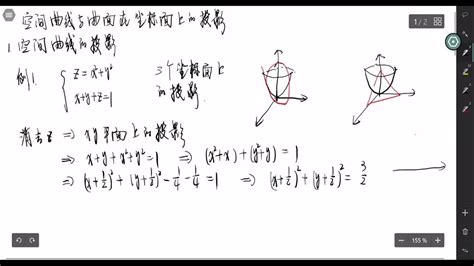 空间曲线与曲面在坐标面上的投影
1. 空间曲线的投影
例1. { z=x²+y² 3个坐标面上
x+y+z=1 的投影
消去z ⇒ xy平面上的投影
⇒ x+y+x²+y²=1 ⇒ (x²+x)+(y²+y)=1
⇒ (x+1/2)²+(y+1/2)²-1/4-1/4=1 ⇒ (x+1/2)²+(y+1/2)²=3/2
1 / 2
155 %